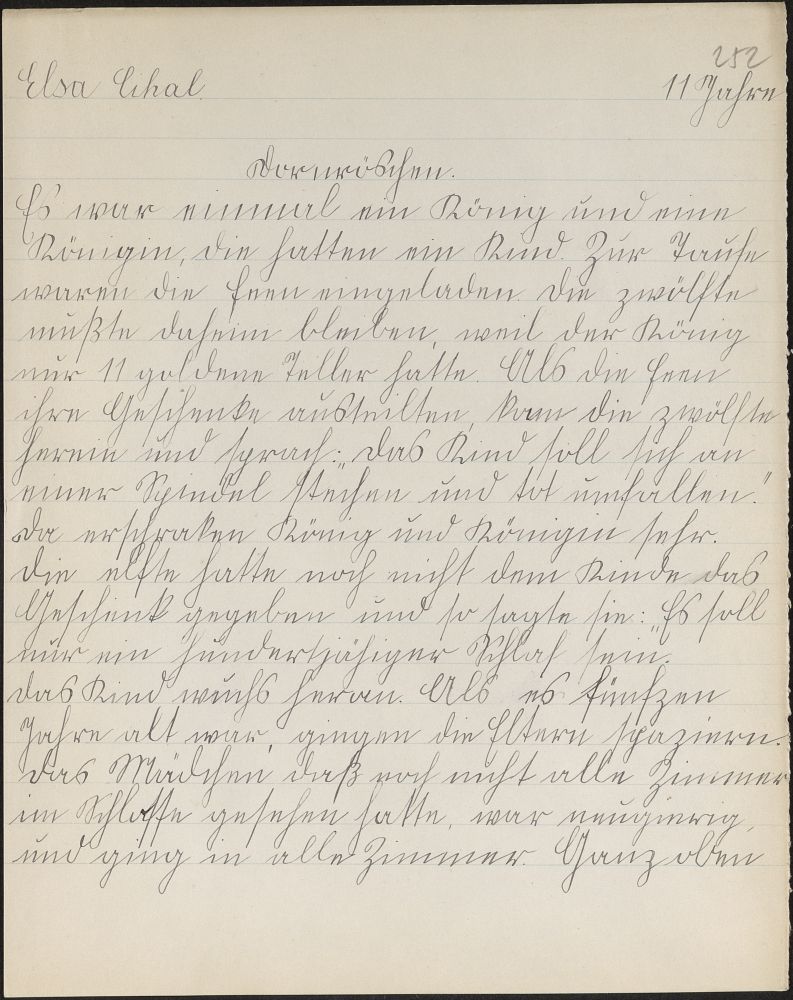 252
Elsa Cihal.
11 Jahre
Dornröschen.
Es war einmal ein König und eine
Königin, die hatten ein Kind. Zur Taufe
waren die Feen eingeladen. Die zwölfte
mußte daheim bleiben, weil der König
nur 11 goldene Teller hatte. Als die Feen
ihre Geschenke austeilten, kam die zwölfte
herein und sprach: „Das Kind soll sich an
einer Spindel stechen und tot umfallen."
Da erschraken König und Königin sehr.
Die elfte hatte noch nicht dem Kinde das
Geschenk gegeben und so sagte sie: „Es soll
nur ein hundertjähiger Schlaf sein.
Das Kind wuchs heran. Als es fünfzen
Jahre alt war, gingen die Eltern spazieren.
Das Mädchen daß noch nicht alle Zimmer
im Schloße gesehen hatte, war neugierig,
und ging in alle Zimmer. Ganz oben